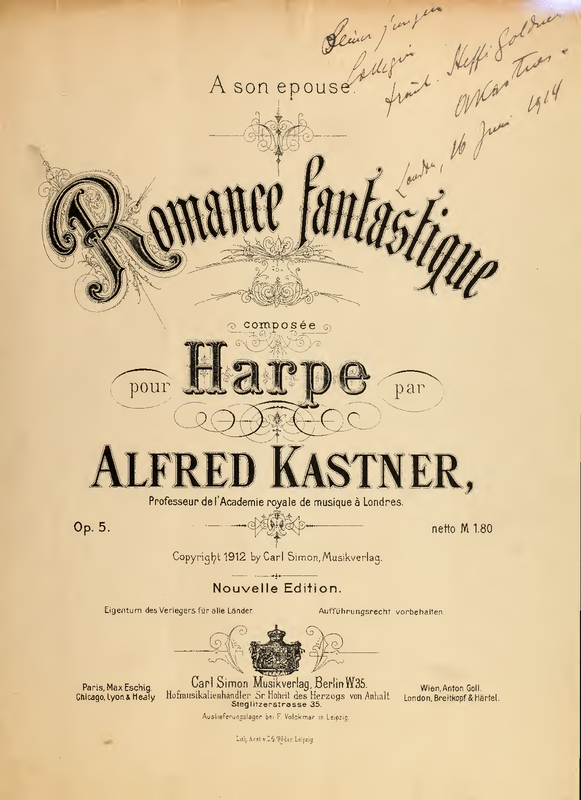 Seiner jungen
Collegin
A son epouse.
fräul. Steffi Goldner
AKastner
London, 16 Juni 1914
Romance fantastique
composée
pour Harpe par
ALFRED KASTNER,
Professeur de l'Academie royale de musique à Londres.
Op. 5.
netto M 1.80
Copyright 1912 by Carl Simon, Musikverlag.
Nouvelle Edition.
Eigentum des Verlegers für alle Länder.
Aufführungsrecht vorbehalten.
Carl Simon Musikverlag, Berlin W 35.
Hofmusikalienhändler Sr Hoheit des Herzogs von Anhalt
Steglitzerstrasse 35.
Paris, Max Eschig.
Chicago, Lyon & Healy
Wien, Anton Goll.
London, Breitkopf & Härtel.
Auslieferungslager bei F. Volckmar in Leipzig.
Lith. Anst. v. C.G. Röder, Leipzig.